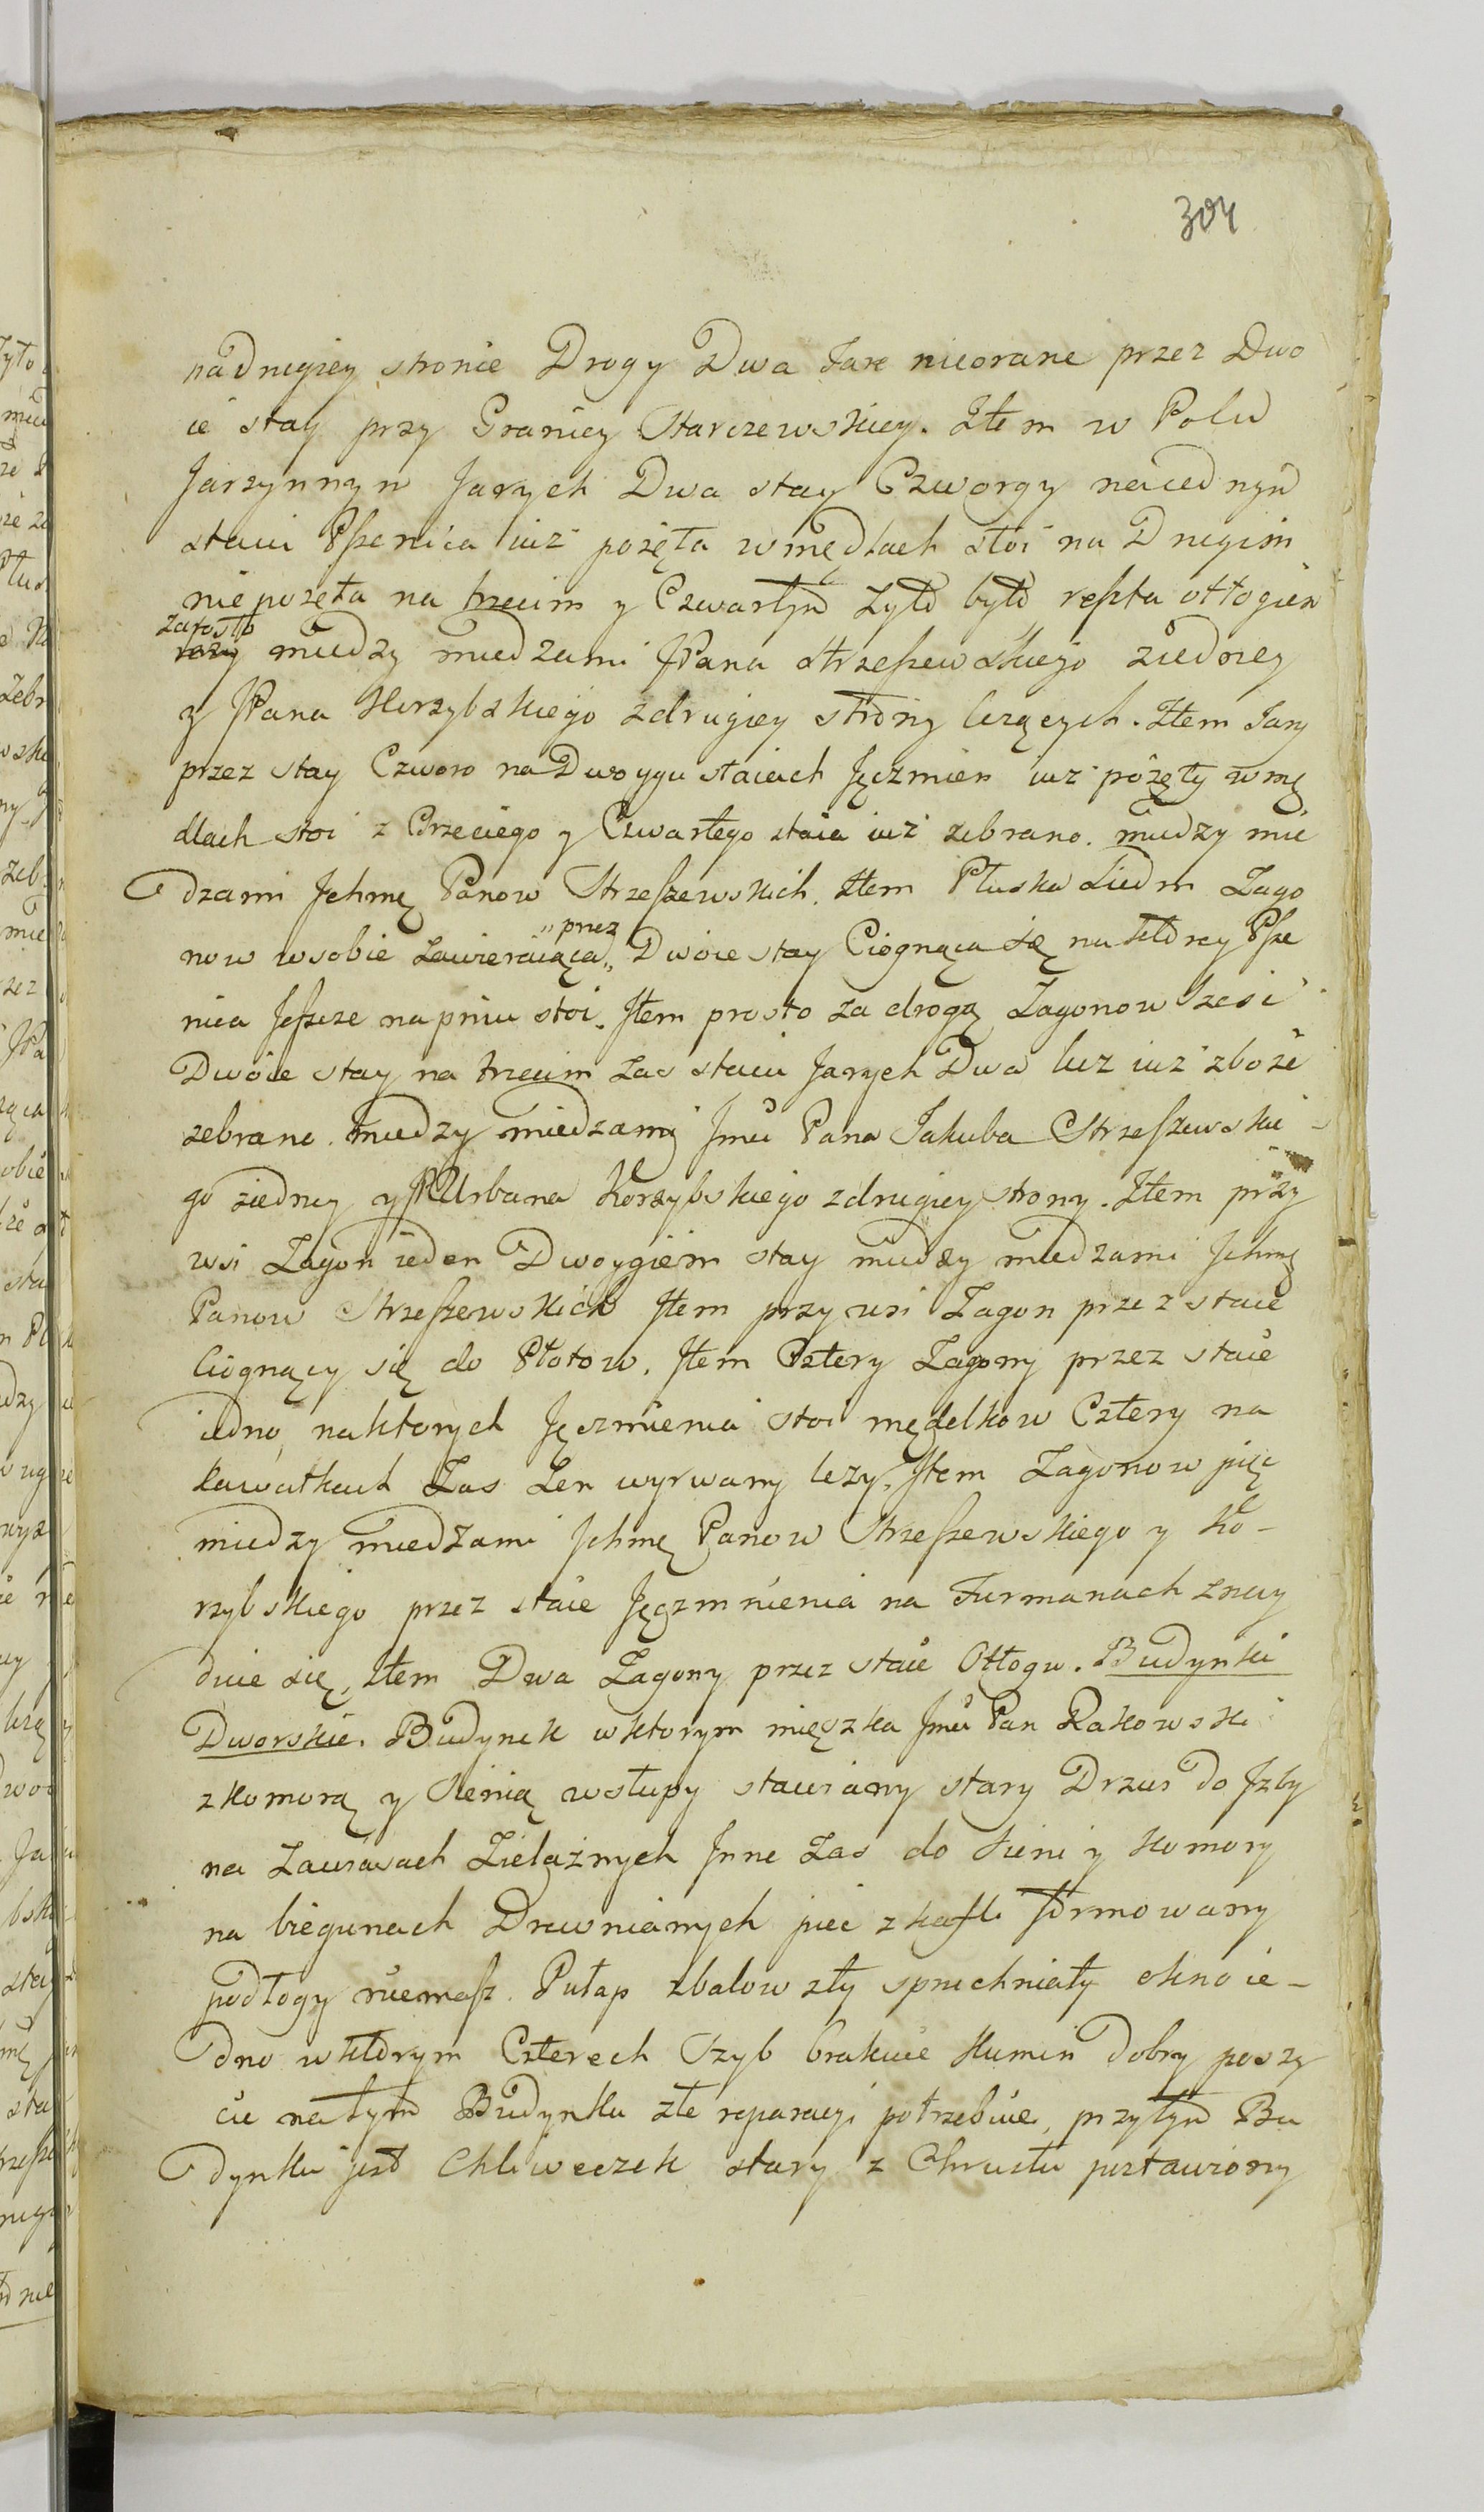 304
na drugiey stronie Drogy Dwa Jare nieorane przez Dwo
ie stay przy Granicy Starczewskiey. Item w Polu
Jarzynnyn Jarych Dwa stay Czworgy na iednym
staiu Pszenica iuz pozęta w mędlach stoi na Drugim
nie pozęta na trzecim y Czwartym zyto było reszta ottogiem
zarosło
miedzy miedzami JPana Strzeszewskiego ziedney
y JPana Korzybskiego z drugiey strony lezących. Item Jary
przez stay Czworo na Dwoygu staiach Jęczmien iuz pozęty w mę
dlach stoi z Trzeciego y Czwartego staia iuz zebrano. miedzy mie
dzami Jchmę Panow Strzeszewskich. Item Płuska Siedm Zago
now w sobie zawieraiąca „przez„ Dwoie stay Ciognąca się na ktorey Psze
nica Jeszcze na pniu stoi. Item prosto za drogą Zagonow Szesc
Dwoie stay na trzecim zas staiu Jarych Dwa lecz iuz zboze
zebrane. miedzy miedzamy Jmci Pana Jakuba Strzeszewskie-
go ziedney y JPUrbana Korzybskiego z drugiey strony. Item przy
wsi Zagon ieden Dwoygiem stay miedzy miedzami Jchmę
Panow Strzeszewskich Item przy wsi Zagon przez staie
Ciognący się do Płotow. Item Cztery Zagony przez staie
iedno, na ktorych Jęczmienia stoi mędelkow Cztery na
kawałkach Zas Len wyrwany lezy. Item Zagonow pięc
miedzy miedzami Jchmę Panow Strzeszewskiego y Ko-
rzybskiego przez staie Jęczmnienia na Furmanach znay
duie się, Item Dwa Zagony przez staie Ottogu. Budynki
Dworskie. Budynek w ktorym mięszka Jmci Pan Rakowski
z komorą y Sienią w słupy stawiany stary Drzwi do Jzby
na Zawiasach Zielaznych Jnne Zas do Sieni y Komory
na biegunach Drewnianych piec z kafli formowany
podłogy niemasz. Pułap z balow zły spruchniały okno ie-
dno w ktorym Czterech Szyb brakuie Kumin dobry poszy
cie na tym Budynku złe reparacyi potrzebuie, przytym Bu
dynku jest Chliweczek stary z Chrustu postawiony